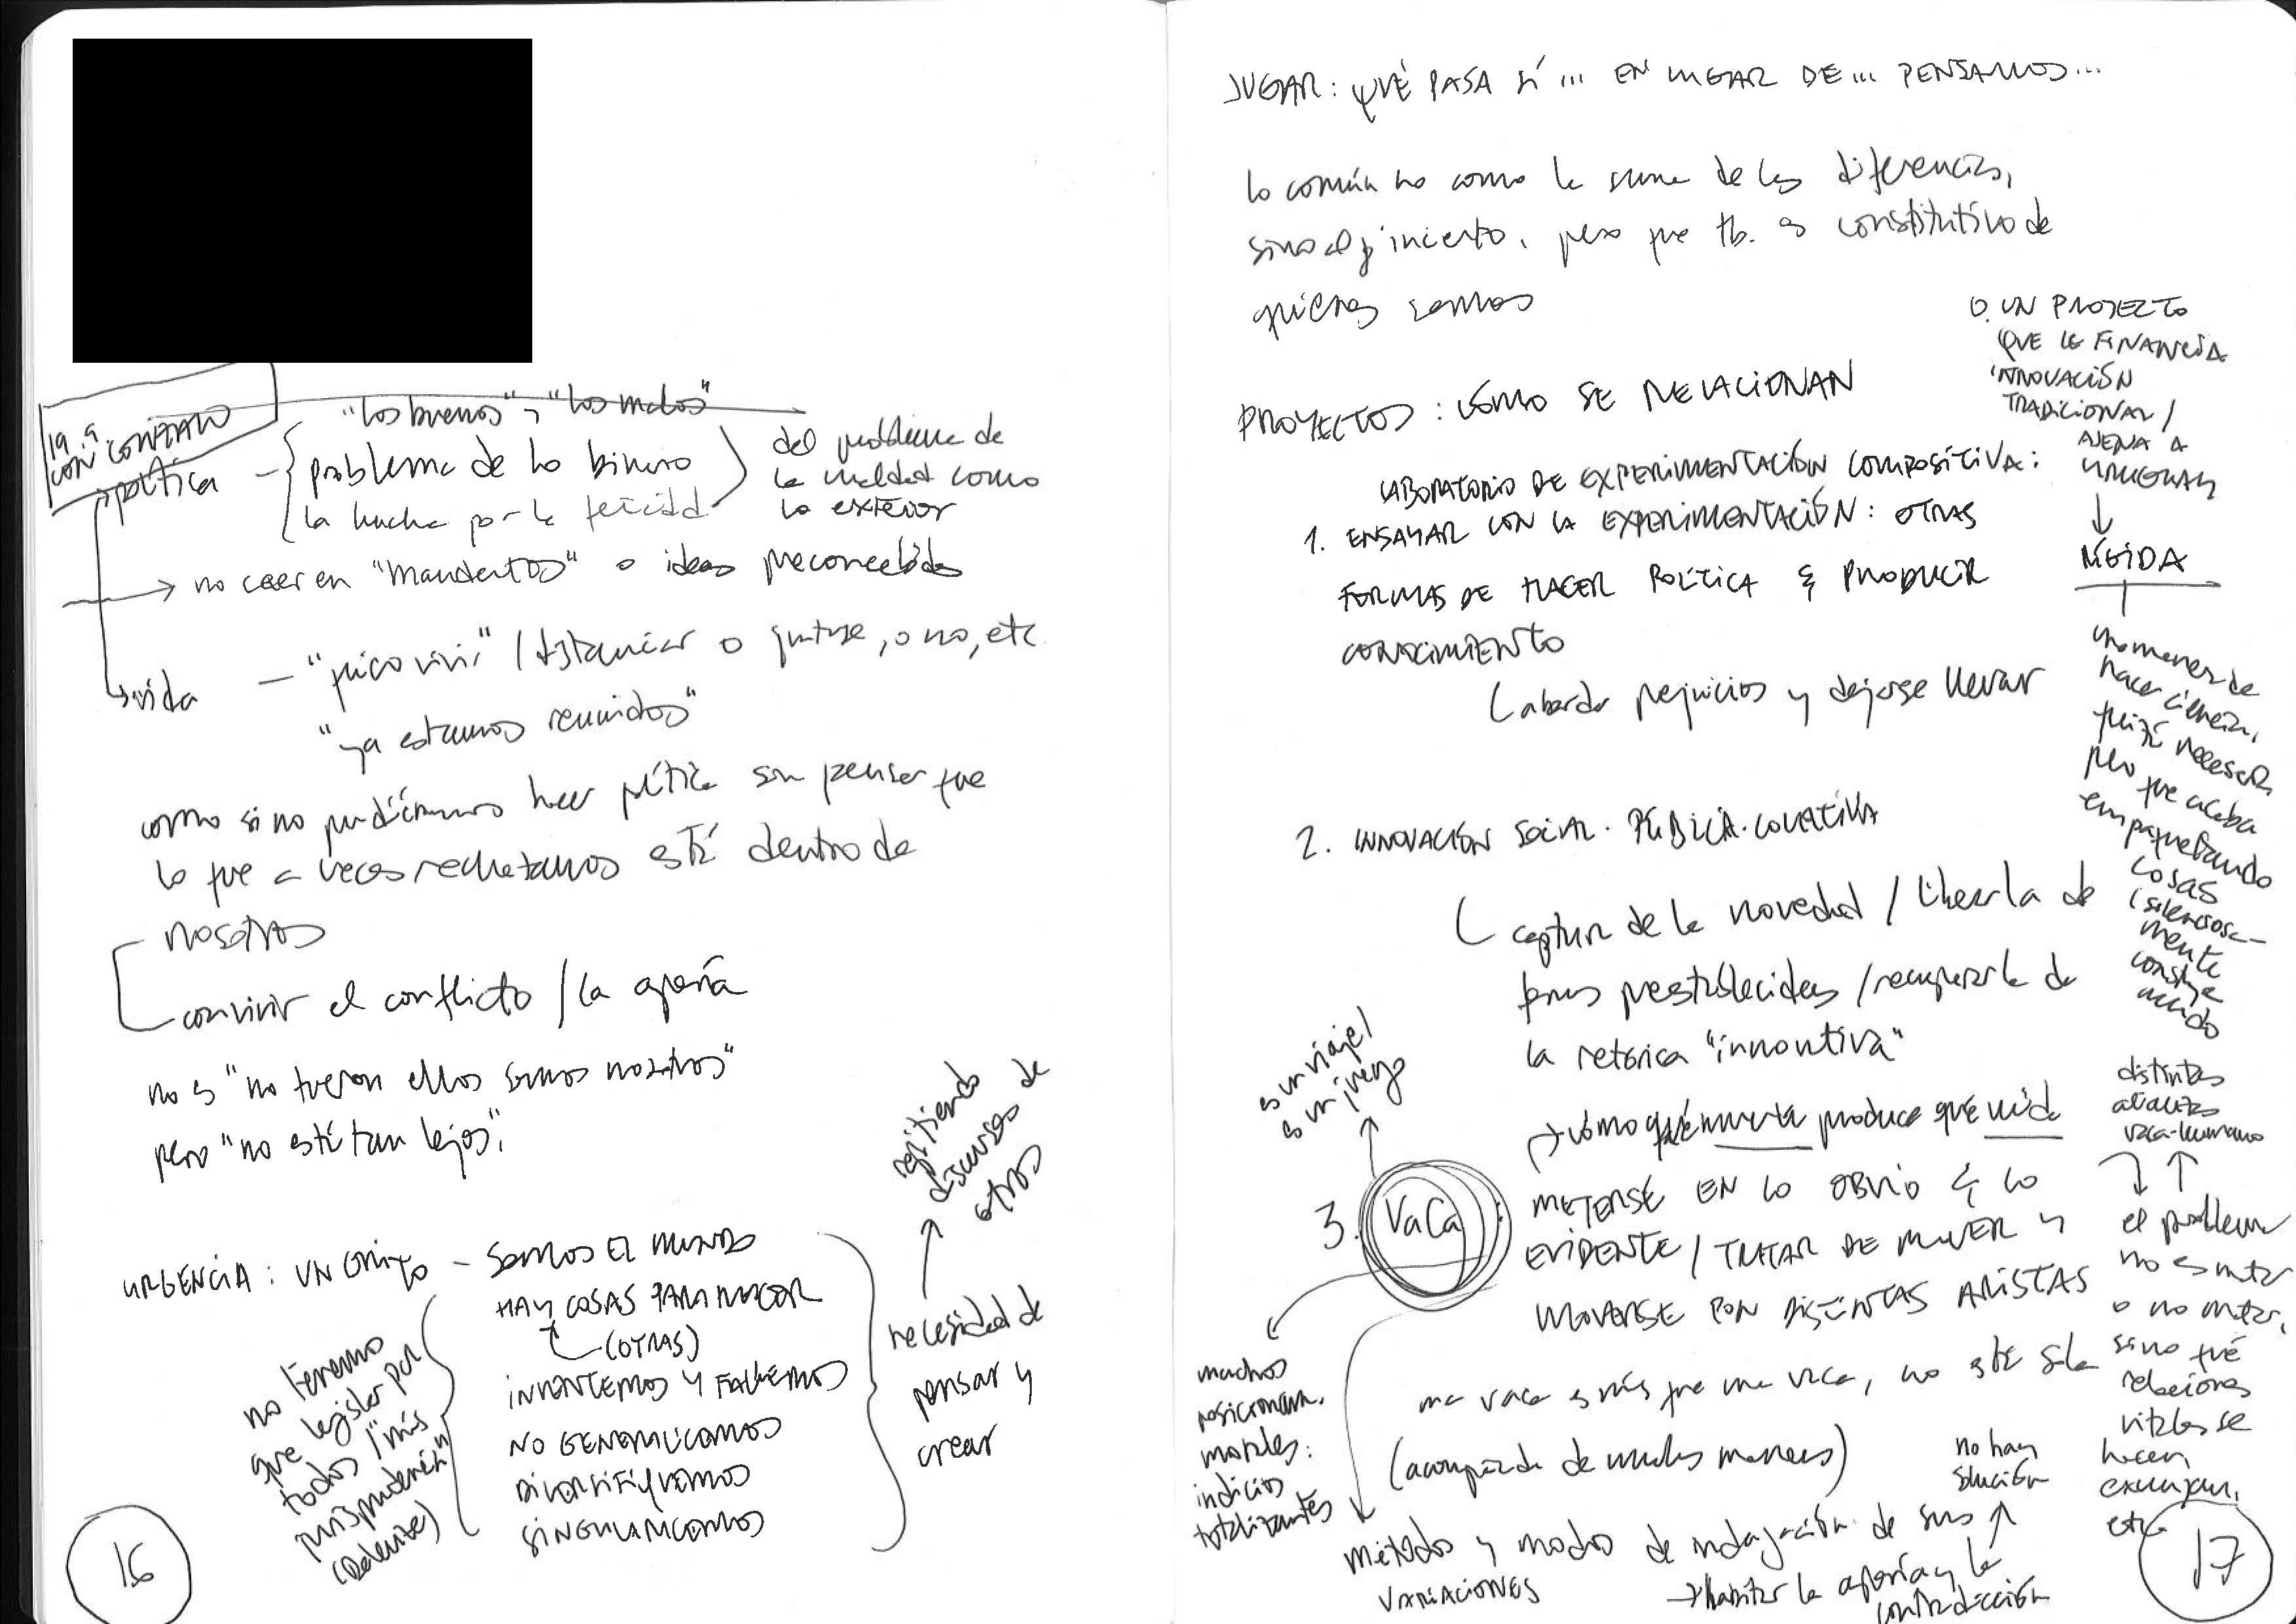 19.9
CON CONTRATO
política —
"los buenos" y "los malos"
problema de lo binario
la lucha por la felicidad
del problema de
la maldad como
lo exterior
→ no caer en "mandatos" o ideas preconcebidas
vida — "picovivir" / distanciar o juntarse, o no, etc.
"ya estamos reunidos"
como si no pudiéramos hacer política sin pensar que
lo que a veces rechazamos está dentro de
nosotros
convivir el conflicto / la aporía
no es "no fueron ellos somos nosotros"
pero "no está tan lejos".
URGENCIA: UN GRITO — SOMOS EL MUNDO
HAY COSAS PARA HACER
(OTRAS)
INVENTEMOS Y FALLEMOS
NO GENERALICEMOS
DIVERSIFIQUEMOS
SINGULARICEMOS
no tenemos
que legislar por
todos / "más
jurisprudencia"
(Deleuze)
necesidad de
pensar y
crear
repitiendo
discursos de
otros
16
JUGAR: QUÉ PASA SI ... EN LUGAR DE ... PENSAMOS ...
lo común no como la suma de las diferencias,
sino algo incierto, pero que tb. es constitutivo de
quienes somos
PROYECTOS: CÓMO SE RELACIONAN
LABORATORIO DE EXPERIMENTACIÓN COMPOSITIVA:
1. ENSAYAR CON LA EXPERIMENTACIÓN: OTRAS
FORMAS DE HACER POLÍTICA & PRODUCIR
CONOCIMIENTO
abordar prejuicios y dejarse llevar
2. INNOVACIÓN SOCIAL. PÚBLICA. COLECTIVA
captura de la novedad / liberarla de
formas preestablecidas / recuperarla de
la retórica "innovativa"
→ cómo qué muerta produce qué vida
3. VaCa: METERSE EN LO OBVIO & LO
EVIDENTE / TRATAR DE MOVER Y
MOVERSE POR DISTINTAS ARISTAS
es un viaje /
es un juego
una vaca es más que una vaca, no está sola
(acompañada de muchas maneras)
muchos
posicionam.
morales:
indicios
totalizantes
Métodos y modos de indagación de sus
VARIACIONES
→ habitar la aporía y la
contradicción
no hay
solución
0. UN PROYECTO
QUE LE FINANCIA
INNOVACIÓN
TRADICIONAL /
AJENA A
URUGUAY
↓
RÍGIDA
una manera de
hacer ciencia,
quizá necesaria,
pero que acaba
empaquetando
cosas
(silenciosa-
mente
construye
mundo
distintas
alianzas
vaca-humano
el problema
no es matar
o no matar,
sino qué
relaciones
vitales se
hacen,
etc.
17